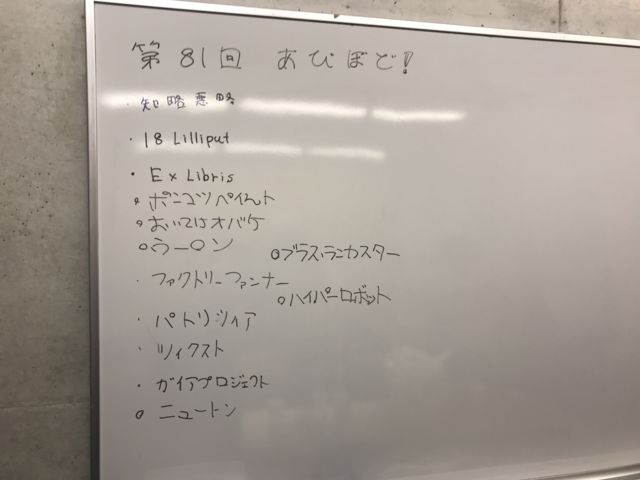 第81回 あびぼど!
・知略悪略
・18 Lilliput
・Ex Libris
・ポンコツペイント
・おいてけオバケ
○ウーロン
○ブラス:ランカスター
・ファクトリーファンナー
○ハイパーロボット
・パトリツィア
・ツィクスト
・ガイアプロジェクト
○ニュートン